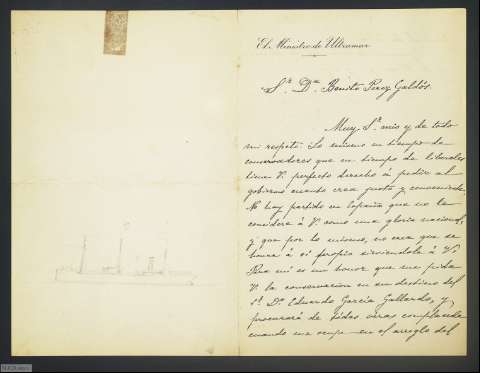 El Ministro de Ultramar
Sr. Dn. Benito Perez Galdós.
Muy Sr. mio y de todo
mi respeto: Lo mismo en tiempo de
conservadores que en tiempo de liberales
tiene V. perfecto derecho á pedir al
gobierno cuanto crea justo y conveniente.
No hay partido en España que no le
considere á V. como una gloria nacional,
y que por lo mismo, no crea que se
honra á sí propio sirviendole á V.
Para mi es un honor que me pida
V. la conservacion en su destino del
Sr. Dn. Eduardo Garcia Gallardo, y
procuraré de todas veras complacerle
cuando me ocupe en el arreglo del